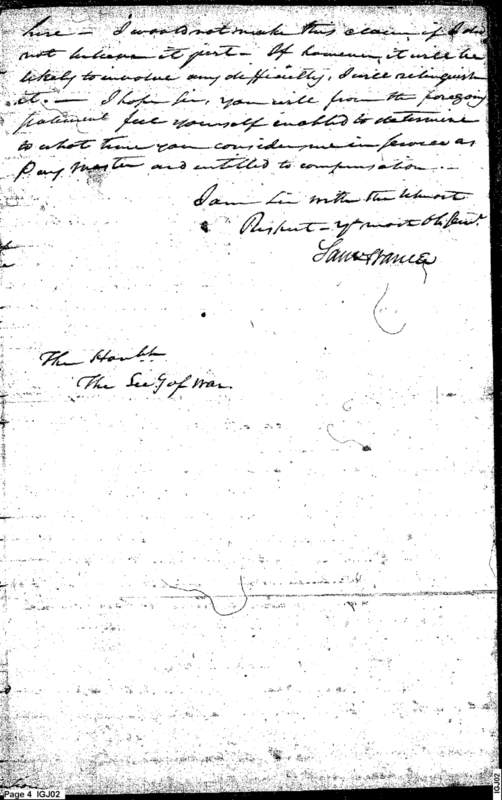 here – I would not make this claim if I did
not believe it just – If however, it will be
likely to involve any difficulty, I will relinquish
it. – I hope Sir, you will from the foregoing
statement feel yourself enabled to determine
to what time you consider me in service as
Pay Master and entitled to compensation. –
I am Sir with the utmost
Respect – Yr most Ob Servt.
Saml Vance
The Honble
The Secy of War.
Page 4 IGJ02
IGJ02